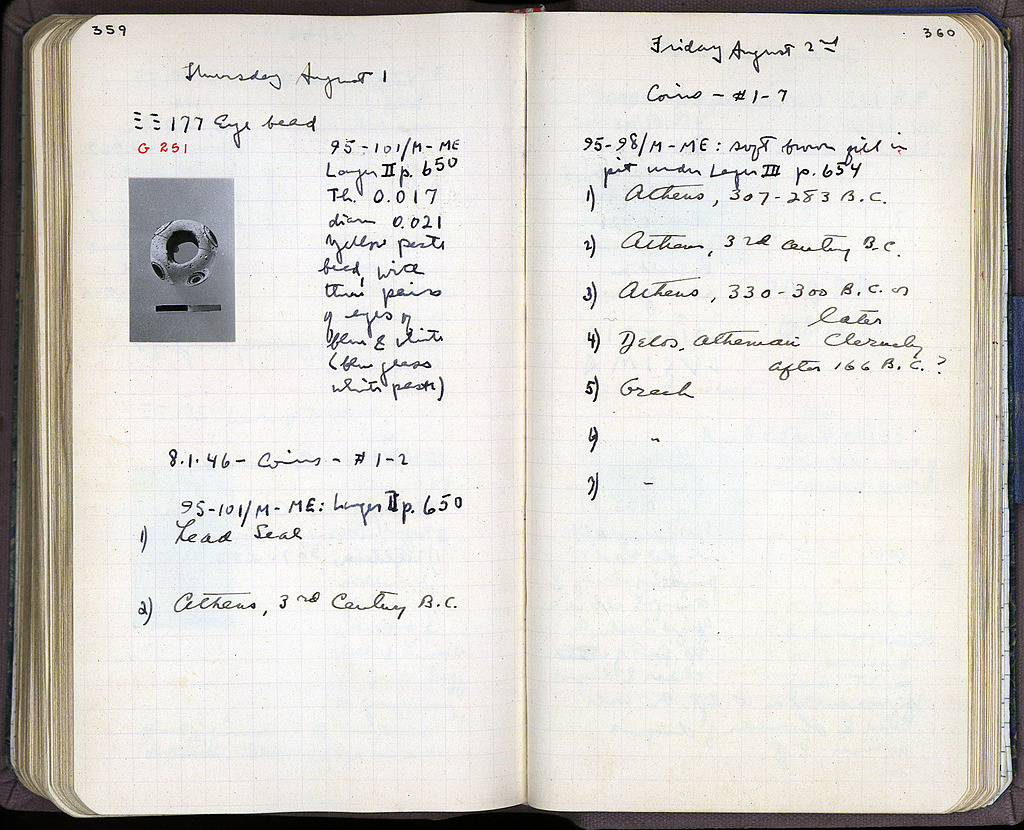 359
Thursday August 1
ΞΞ 177 Eye bead
G 251
95-101/M-ME
Layer II p. 650
Th. 0.017
diam 0.021
Yellow paste
bead, with
three pairs
of eyes of
blue & white
(blue glass
white paste)
8.1.46 - Coins - #1-2
95-101/M-ME: Layer II p. 650
1) Lead Seal
2) Athens, 3rd Century B.C.
360
Friday August 2nd
Coins - #1-7
95-98/M-ME: soft brown fill in
pit under Layer III p. 654
1) Athens, 307-283 B.C.
2) Athens, 3rd century B.C.
3) Athens, 330-300 B.C. or
later
4) Delos, Athenian Cleruchy
after 166 B.C.?
5) Greek
6) "
7) "